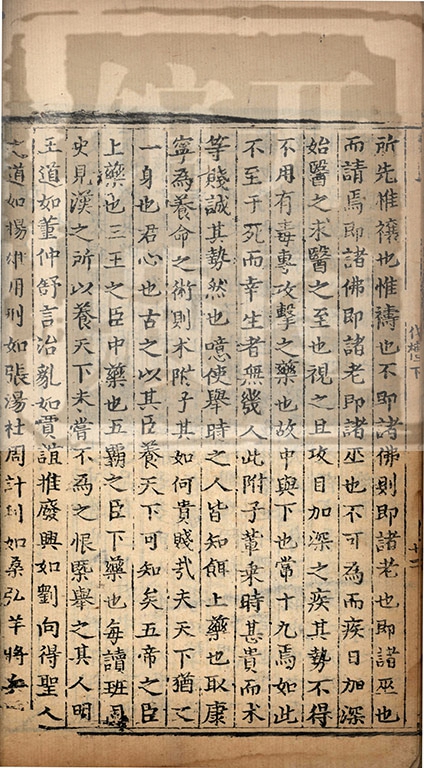 所先惟禳也惟禱也不即諸佛則即諸老也即諸巫也
而請焉即諸佛即諸老即諸巫也不可為而疾日加深
始醫之求醫之至也視之且攻目加深之疾其勢不得
不用有毒專攻擊之藥也故中與下也常十九焉如此
不至于死而幸生者無幾人此附子輩乗時甚貴而术
等賤誠其勢然也噫使舉時之人皆知餌上藥也取康
寧為養命之術則术附子其如何貴賤㢤夫天下猶之
一身也君心也古之以其臣養天下可知矣五帝之臣
上藥也三王之臣中藥也五霸之臣下藥也每讀班
史見漢之所以養天下未甞不為之恨槩舉之其人明
王道如董仲舒言治亂如賈誼推廢興如劉向得聖人
之道如揚雄用刑如張湯杜周計利如桑弘羊將
下
十二